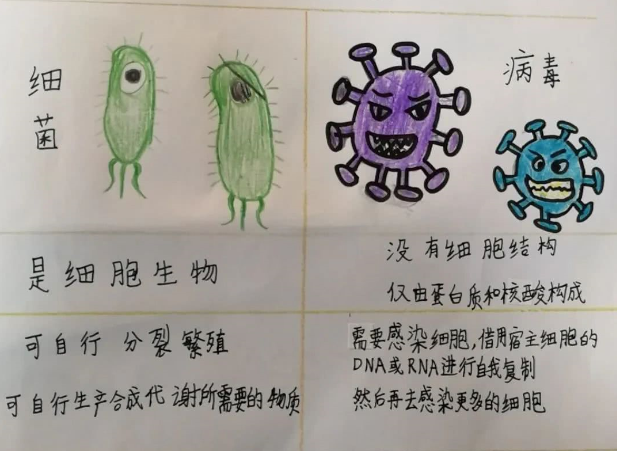 细菌
病毒
是细胞生物
没有细胞结构
仅由蛋白质和核酸构成
可自行 分裂繁殖
可自行生产合成代谢所需要的物质
需要感染细胞,借用宿主细胞的
DNA或RNA进行自我复制
然后再去感染更多的细胞